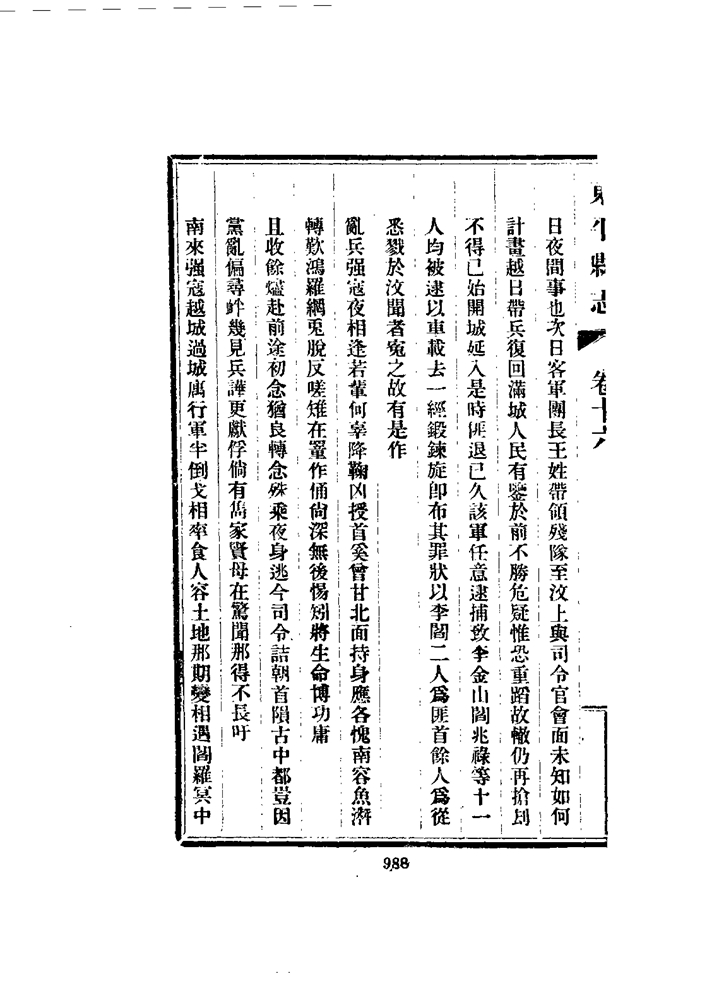 東平縣志 卷十六
日夜間事也次日客軍團長王姓帶領殘隊至汶上與司令官會面未知如何
計畫越日帶兵復回滿城人民有鑒於前不勝危疑惟恐重蹈故轍仍再搶刦
不得已始開城延入是時匪退已久該軍任意逮捕致李金山閻兆祿等十一
人均被逮以車載去一經鍛鍊旋卽布其罪狀以李閻二人爲匪首餘人爲從
悉戮於汶聞者寃之故有是作
亂兵强寇夜相逢若輩何辜降鞠凶授首奚曾甘北面持身應各愧南容魚濟
轉歎鴻羅網兎脫反嗟雉在罿作俑尙深無後惕矧將生命博功庸
且收餘燼赴前途初念猶良轉念殊乘夜身逃今司令詰朝首隕古中都豈因
黨亂偏尋衅幾見兵譁更獻俘倘有雋家賢母在驚聞那得不長吁
南來强寇越城過城厲行軍半倒戈相率食人容土地那期變相遇閻羅冥中
988